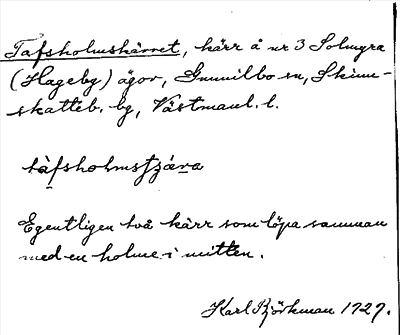 Tafsholmskärret, kärr å nr 3 Solmyra
(Hageby) ägor, Gunnilbo sn, Skinn-
skatteb. bg, Västmanl. l.
tàfsholmsʃzára
Egentligen två kärr som löpa samman
med en holme i mitten.
Karl Björkman 1927.